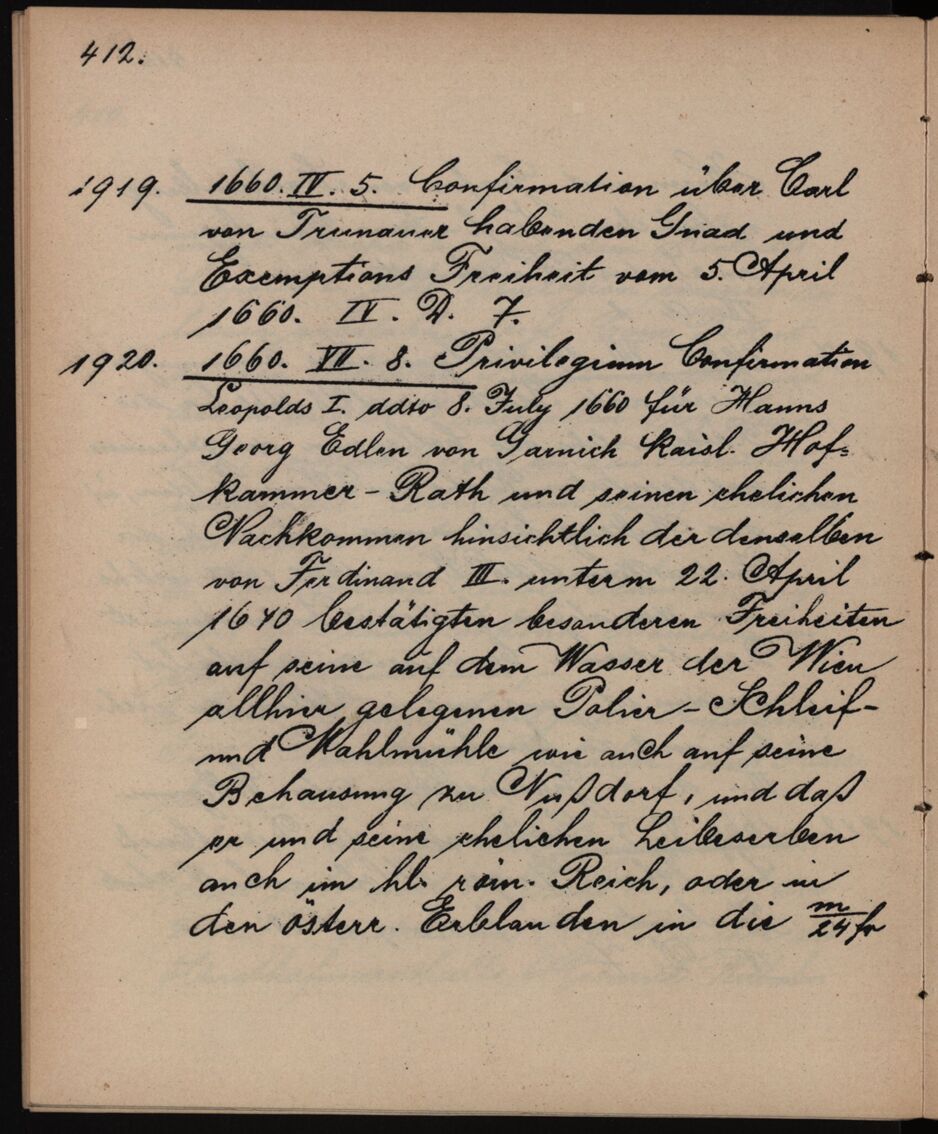 412.
1919. 1660. IV. 5. Confirmation über Carl
von Trunauer habenden Gnad und
Exemptions Freiheit vom 5. April
1660. IV. D. 7.
1920. 1660. VII. 8. Privilegium Confirmation
Leopolds I. ddto 8. July 1660 für Hanns
Georg Edlen von Garnich kaisl. Hof=
kammer - Rath und seinen ehelichen
Nachkommen hinsichtlich der denselben
von Ferdinand III. unterm 22. April
1640 bestätigten besonderen Freiheiten
auf seine auf dem Wasser der Wien
allhier gelegenen Polier - Schleif -
und Mahlmühle wie auch auf seine
Behausung zu Nußdorf, und daß
er und seine ehelichen Leibeserben
auch im hl. röm. Reich, oder in
den österr. Erblanden in die m/24 fr